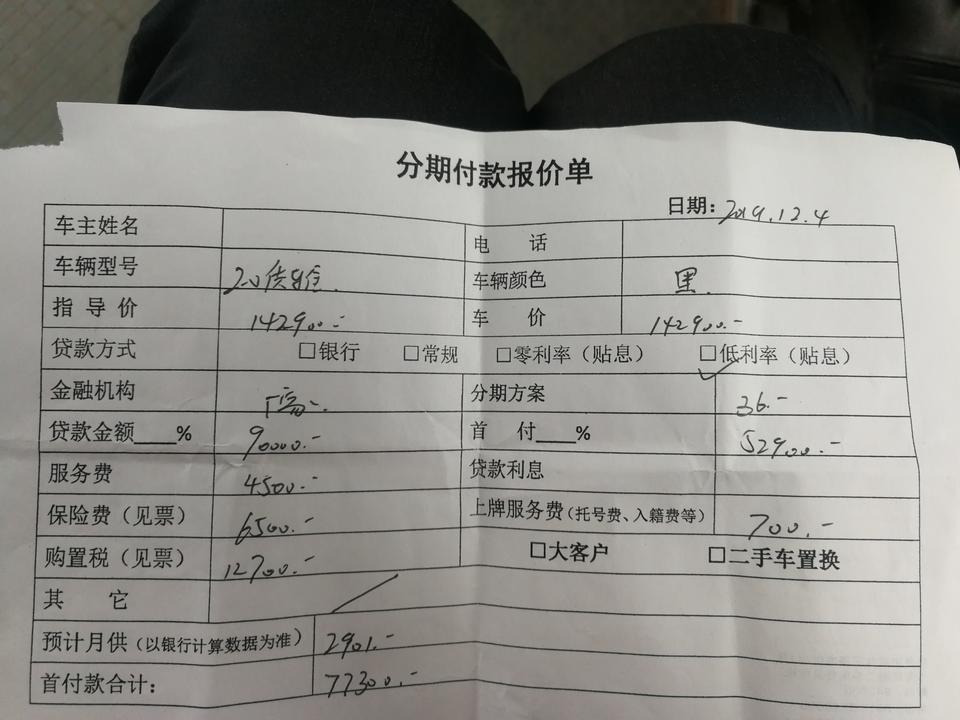 分期付款报价单
日期：2019.12.4
车主姓名 电 话
车辆型号 2.0 车辆颜色 黑.
指导价 142900.- 车 价 142900.-
贷款方式 □银行 □常规 □零利率（贴息） □低利率（贴息）
金融机构 分期方案 36.-
贷款金额____% 90000.- 首 付____% 52900.-
服务费 4500.- 贷款利息
保险费（见票） 6500.- 上牌服务费（托号费、入籍费等） 700.-
购置税（见票） 12700.- □大客户 □二手车置换
其 它
预计月供（以银行计算数据为准） 2901.-
首付款合计： 77300.-